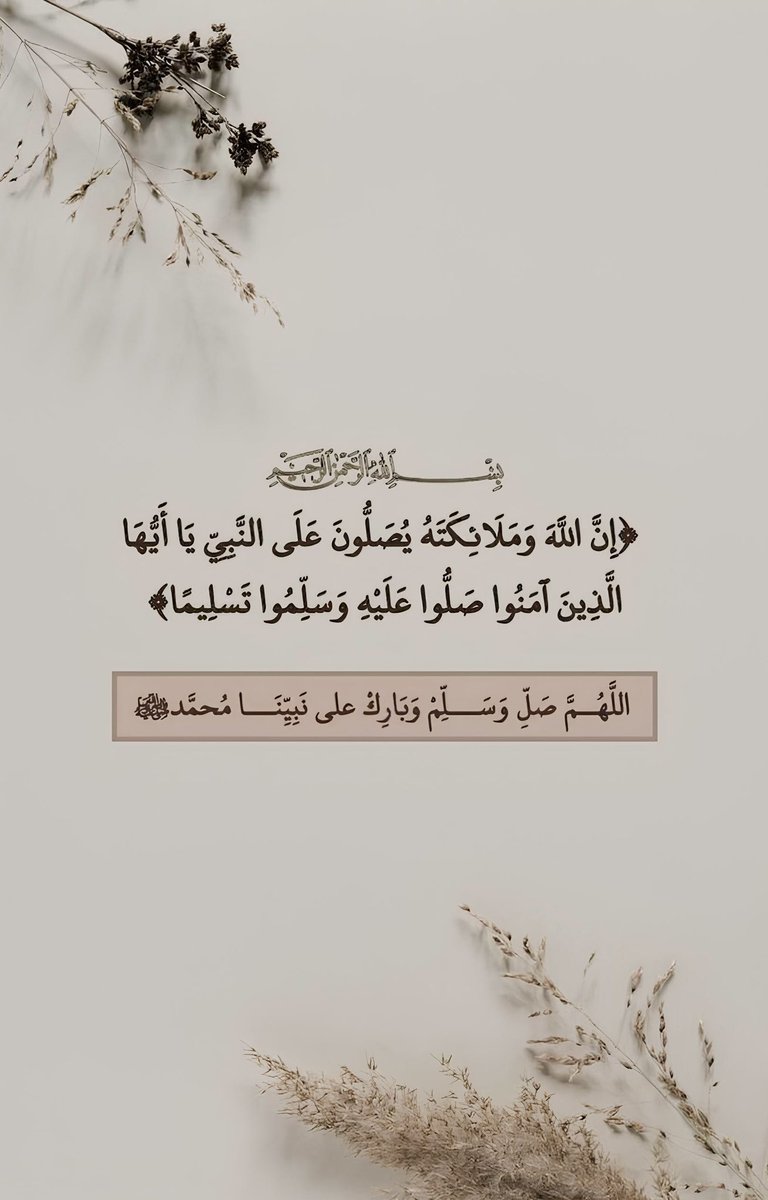 بِسْمِ اللَّهِ الرَّحْمَٰنِ الرَّحِيمِ
﴿إِنَّ اللَّهَ وَمَلَائِكَتَهُ يُصَلُّونَ عَلَى النَّبِيِّ يَا أَيُّهَا
الَّذِينَ آمَنُوا صَلُّوا عَلَيْهِ وَسَلِّمُوا تَسْلِيمًا﴾
اللَّهُـــمَّ صَلِّ وَسَـــلِّمْ وَبَارِكْ على نَبِيِّنَـــا مُحمَّد ﷺ